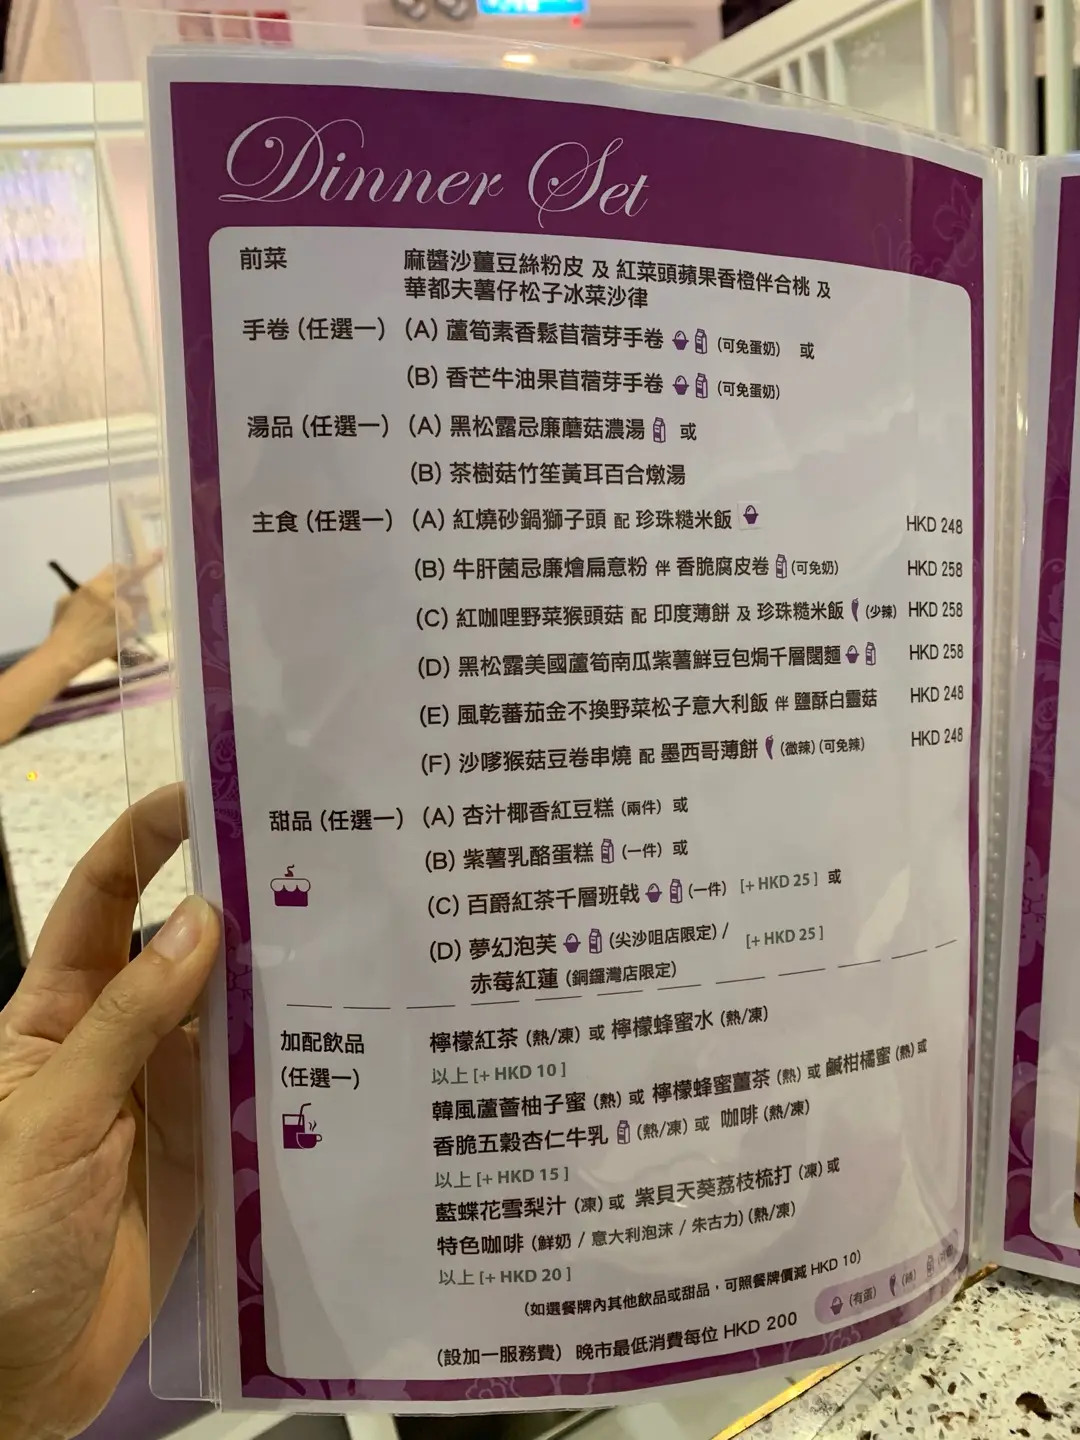 Dinner Set
前菜 麻醬沙薑豆絲粉皮 及 紅菜頭蘋果香橙伴合桃 及
華都夫薯仔松子冰菜沙律
手卷 (任選一) (A) 蘆筍素香鬆苜蓿芽手卷 (可免蛋奶) 或
(B) 香芒牛油果苜蓿芽手卷 (可免蛋奶)
湯品 (任選一) (A) 黑松露忌廉蘑菇濃湯 或
(B) 茶樹菇竹笙黃耳百合燉湯
主食 (任選一) (A) 紅燒砂鍋獅子頭 配 珍珠糙米飯 HKD 248
(B) 牛肝菌忌廉燴扁意粉 伴 香脆腐皮卷 (可免奶) HKD 258
(C) 紅咖喱野菜猴頭菇 配 印度薄餅 及 珍珠糙米飯 (少辣) HKD 258
(D) 黑松露美國蘆筍南瓜紫薯鮮豆包焗千層闊麵 HKD 258
(E) 風乾蕃茄金不換野菜松子意大利飯 伴 鹽酥白靈菇 HKD 248
(F) 沙嗲猴菇豆卷串燒 配 墨西哥薄餅 (微辣) (可免辣) HKD 248
甜品 (任選一) (A) 杏汁椰香紅豆糕 (兩件) 或
(B) 紫薯乳酪蛋糕 (一件) 或
(C) 百爵紅茶千層班戟 (一件) [+ HKD 25] 或
(D) 夢幻泡芙 (尖沙咀店限定) / [+ HKD 25]
赤莓紅蓮 (銅鑼灣店限定)
加配飲品 檸檬紅茶 (熱/凍) 或 檸檬蜂蜜水 (熱/凍)
(任選一) 以上 [+ HKD 10]
韓風蘆薈柚子蜜 (熱) 或 檸檬蜂蜜薑茶 (熱) 或 鹹柑橘蜜 (熱) 或
香脆五穀杏仁牛乳 (熱/凍) 或 咖啡 (熱/凍)
以上 [+ HKD 15]
藍蝶花雪梨汁 (凍) 或 紫貝天葵荔枝梳打 (凍) 或
特色咖啡 (鮮奶 / 意大利泡沫 / 朱古力) (熱/凍)
以上 [+ HKD 20]
(如選餐牌內其他飲品或甜品，可照餐牌價減 HKD 10)
(有蛋) (辣)
(設加一服務費) 晚市最低消費每位 HKD 200